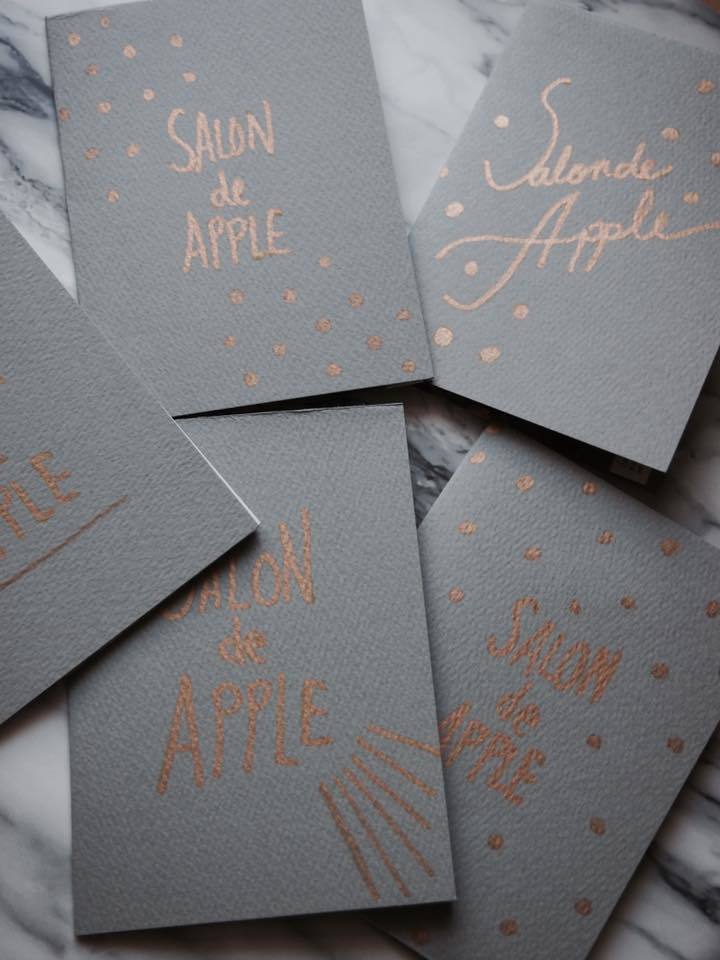 SALON
de
APPLE
Salonde
Apple
APPLE
SALON
de
APPLE
SALON
de
APPLE